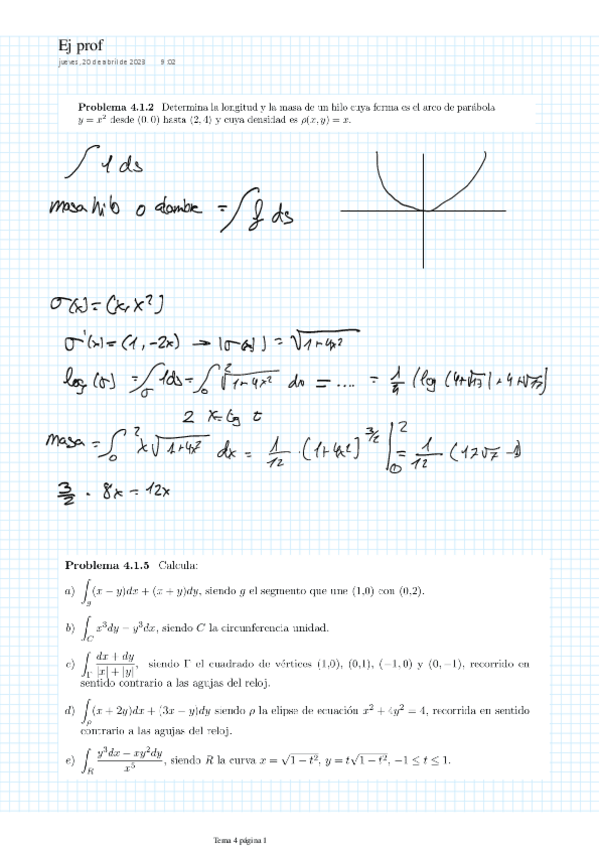 Ej prof
jueves, 20 de abril de 2023 9:02
Problema 4.1.2 Determina la longitud y la masa de un hilo cuya forma es el arco de parábola
y = x² desde (0,0) hasta (2,4) y cuya densidad es ρ(x,y) = x.
∫ 1 ds
masa hilo o alambre = ∫ f ds
σ(x) = (x, x²)
σ'(x) = (1, -2x) → |σ'(x)| = √1+4x²
long (σ) = ∫_σ 1 ds = ∫_0^2 √1+4x² dx = .... = 1/4 (log (4+√17) + 4√17)
2x = tg t
masa = ∫_0^2 x√1+4x² dx = 1/12 · (1+4x²]^3/2 |_0^2 = 1/12 (17√17 - 1)
3/2 · 8x = 12x
Problema 4.1.5 Calcula:
a) ∫_g (x − y)dx + (x + y)dy, siendo g el segmento que une (1,0) con (0,2).
b) ∫_C x³dy − y³dx, siendo C la circunferencia unidad.
c) ∫_Γ (dx + dy)/(|x| + |y|), siendo Γ el cuadrado de vértices (1,0), (0,1), (−1,0) y (0,−1), recorrido en
sentido contrario a las agujas del reloj.
d) ∫_ρ (x + 2y)dx + (3x − y)dy siendo ρ la elipse de ecuación x² + 4y² = 4, recorrida en sentido
contrario a las agujas del reloj.
e) ∫_R (y³dx − xy²dy)/x⁵, siendo R la curva x = √1 − t², y = t√1 − t², −1 ≤ t ≤ 1.
Tema 4 página 1